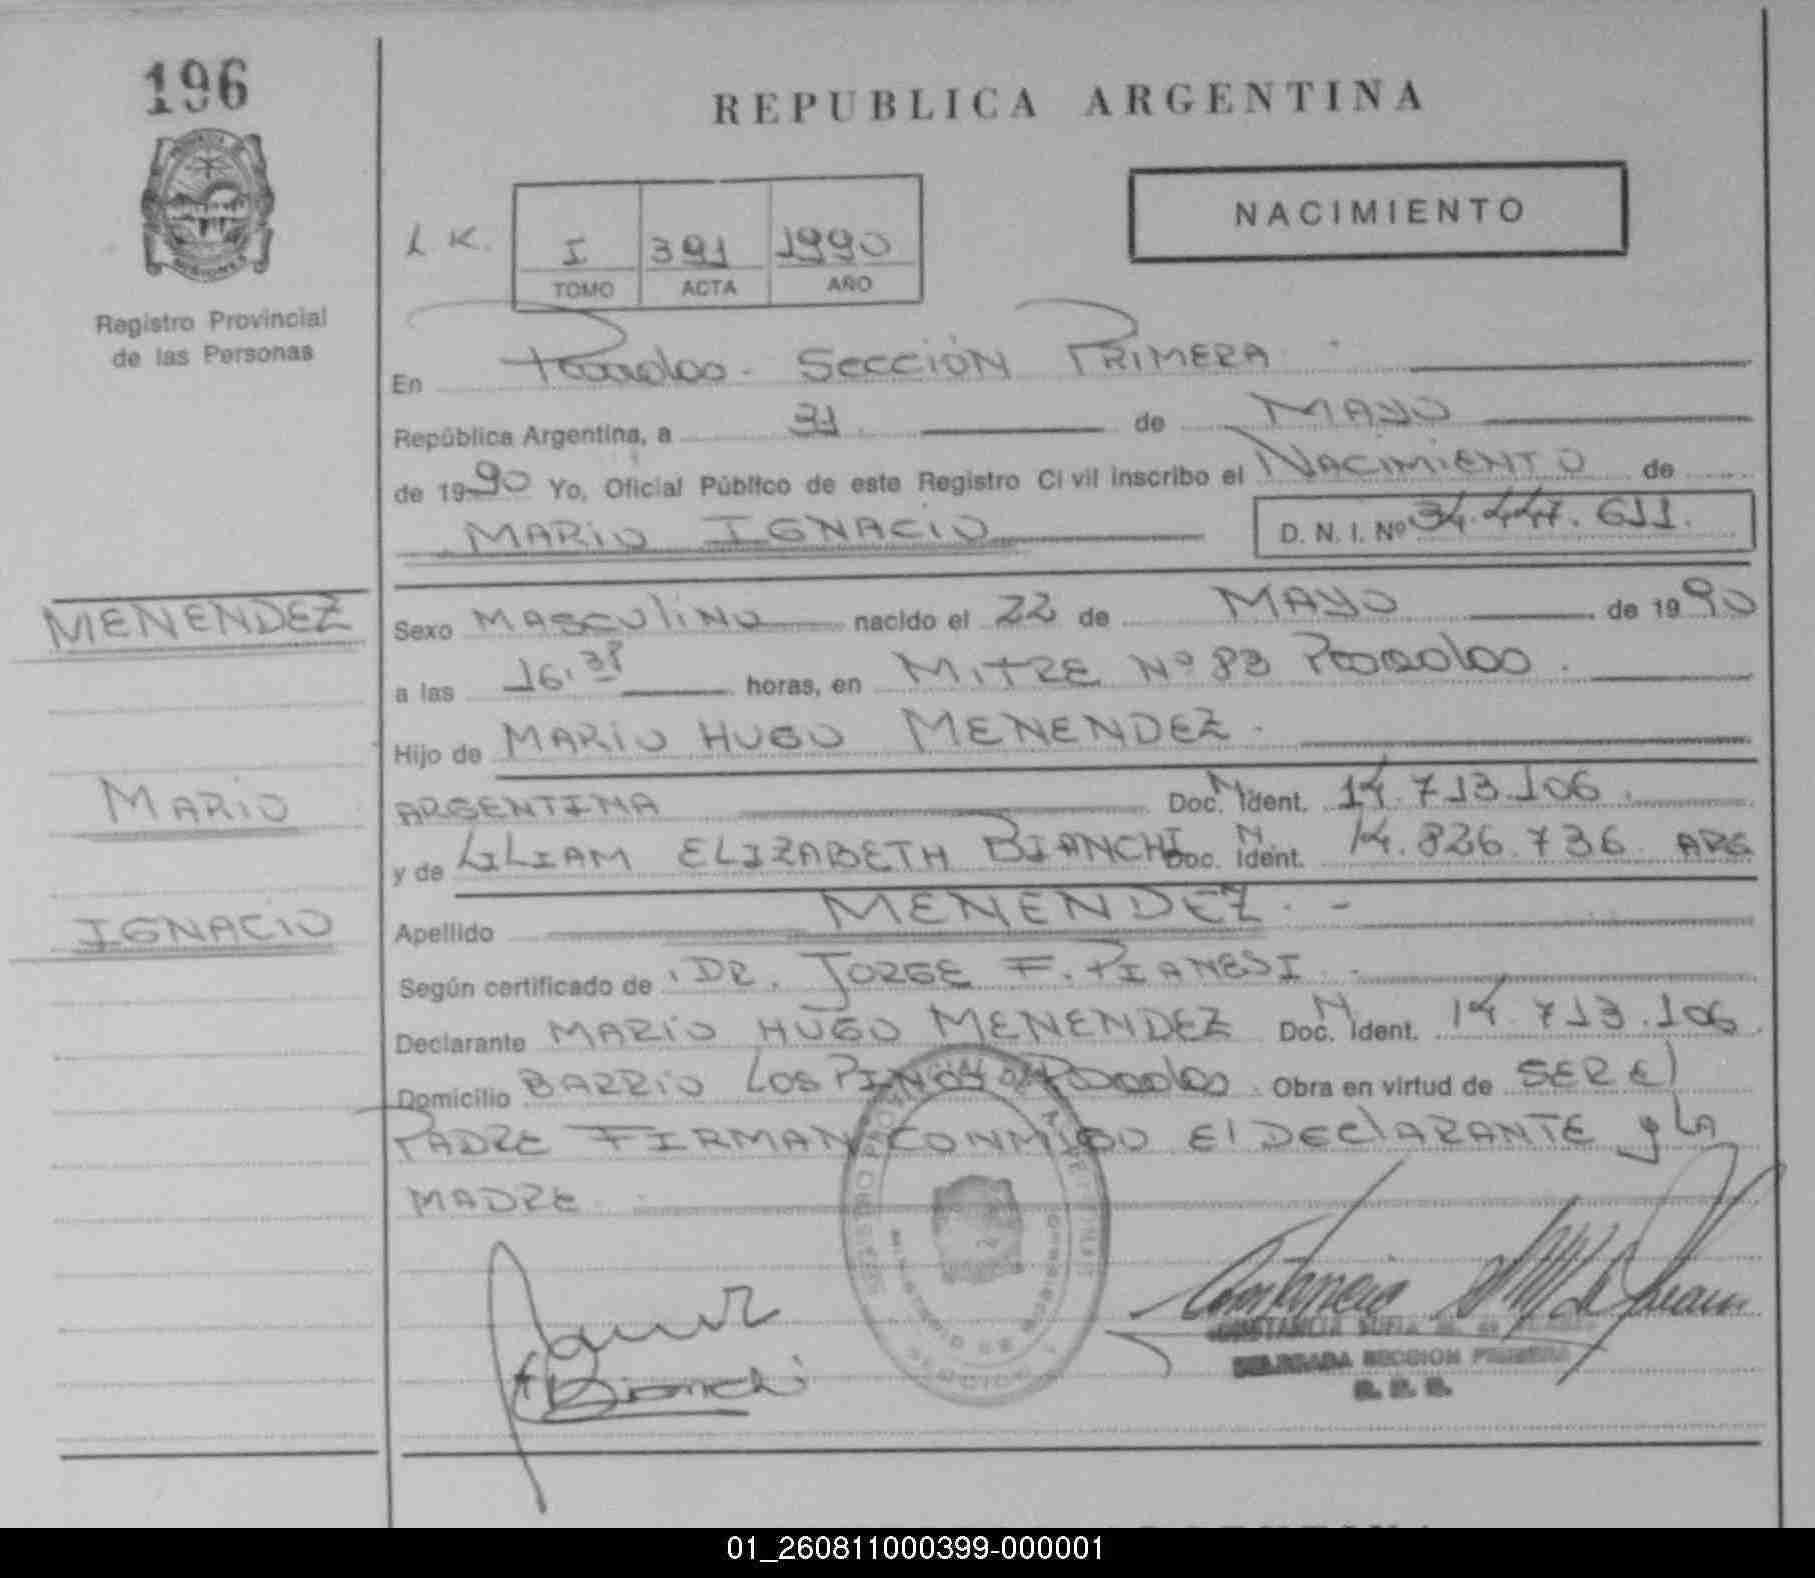 196
REPUBLICA ARGENTINA
NACIMIENTO
L K.
I 391 1990
TOMO ACTA AÑO
Registro Provincial
de las Personas
En Posadas. Sección PRIMERA
República Argentina, a 31 de MAYO
de 1990 Yo, Oficial Público de este Registro Civil inscribo el NACIMIENTO de
MARIO IGNACIO D. N. I. Nº 34.447.611.
MENENDEZ
Sexo MASCULINO nacido el 22 de MAYO de 1990
a las 16.38 horas, en MITRE Nº 83 Posadas.
Hijo de MARIO HUGO MENENDEZ.
MARIO
ARGENTINA Doc. N. Ident. 14.713.106.
y de LILIAM ELIZABETH BIANCHI Doc. N. Ident. 14.826.736 ARG
IGNACIO
Apellido MENENDEZ. -
Según certificado de DR. JORGE F. PIANESI
Declarante MARIO HUGO MENENDEZ Doc. N. Ident. 14.713.106
Domicilio BARRIO LOS PINOS Posadas. Obra en virtud de SER El
PADRE FIRMAN CONMIGO El DEClARANTE y LA
MADRE.
Bianchi
CONSTANCIA SOFIA M. de
DELEGADA SECCION PRIMERA
R. P. P.
01_260811000399-000001